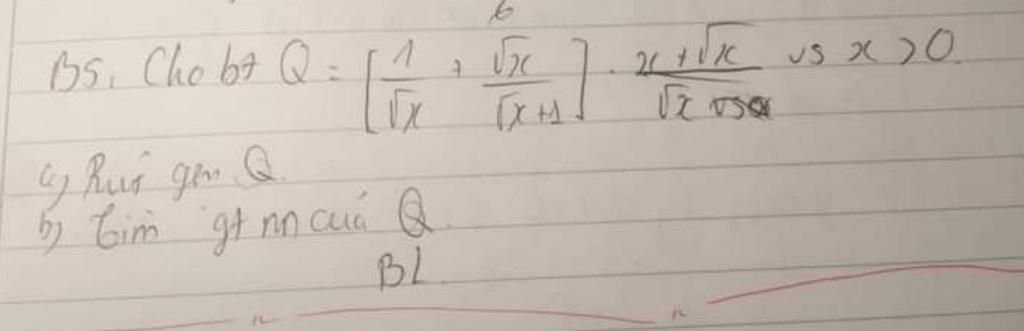 6
B5, Cho bt Q = [1/√x + √x/(√x+1)] . (x+√x)/√x vs x > 0.
a) Rút gọn Q.
b) Tìm gt nn của Q.
BL